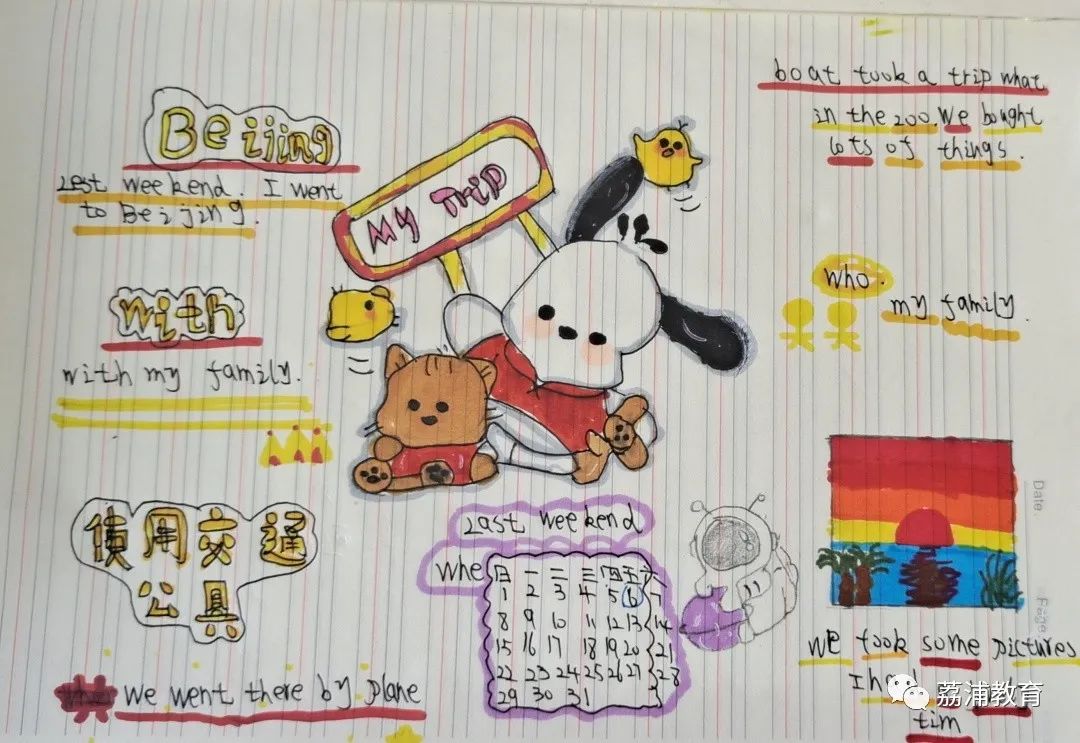 Beijing
Lest weekend. I went
to Beijing.
with
with my family.
使用交通
公具
we went there by plane
MY TRIP
Last weekend
whe
日 一 二 三 四 五 六
1 2 3 4 5 6 7
8 9 10 11 12 13 14
15 16 17 18 19 20 21
22 23 24 25 26 27 28
29 30 31
boat took a trip what
in the zoo. We bought
lots of things.
who.
my family.
Date.
Page
We took some pictures
I
tim
荔浦教育